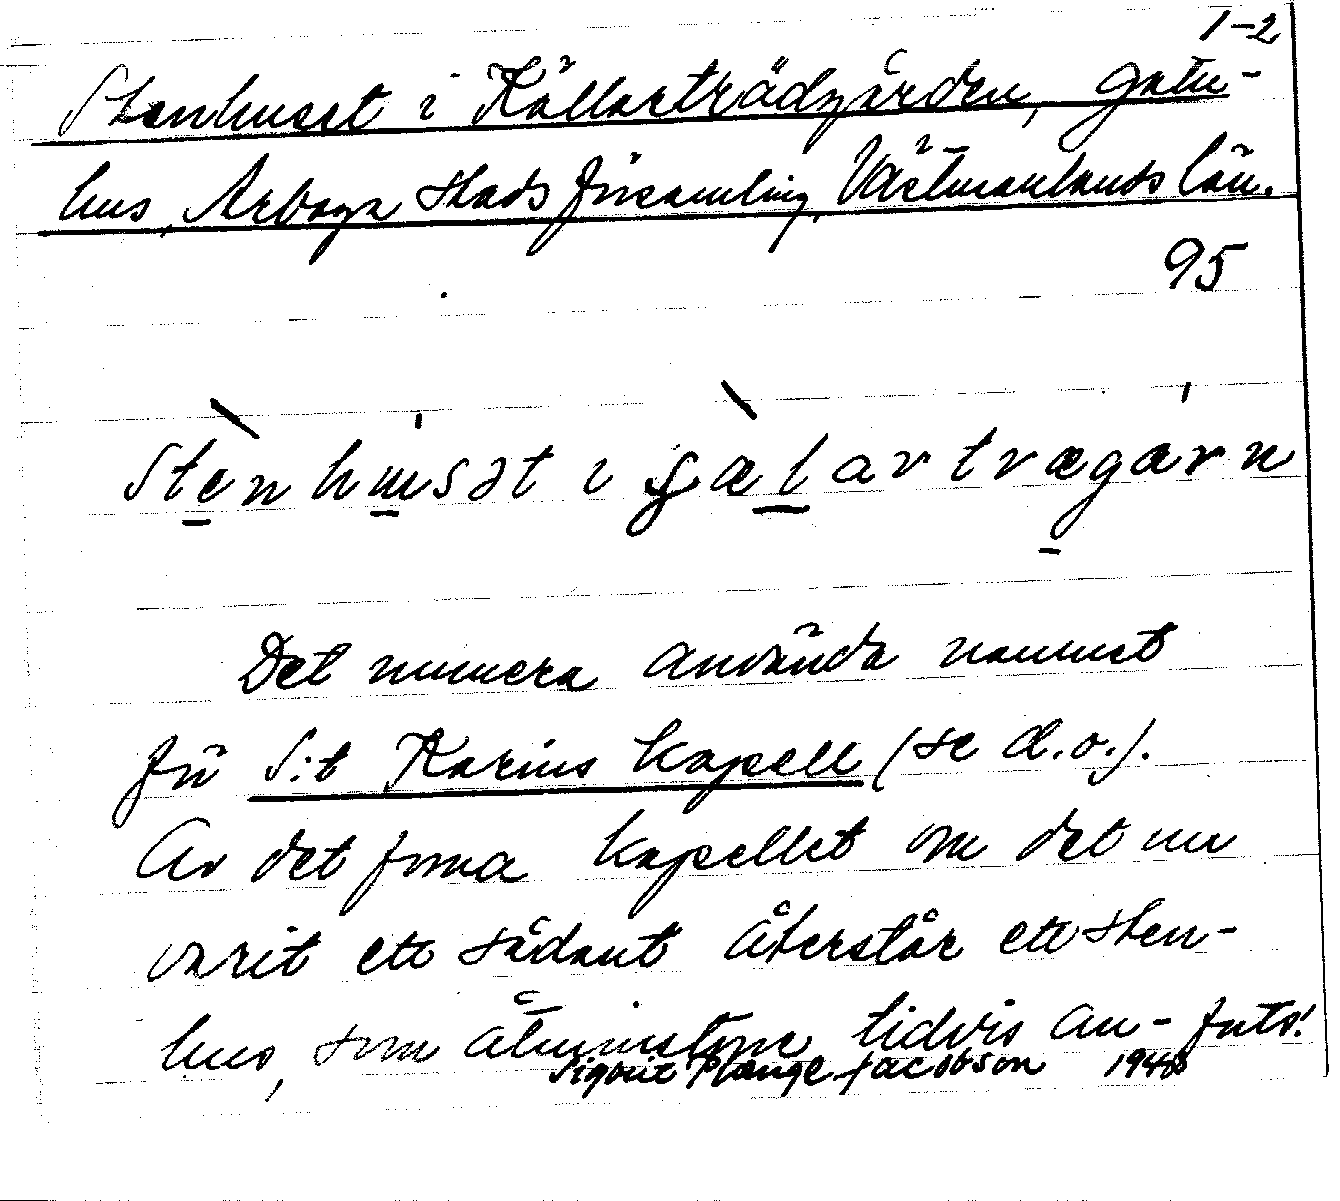 1-2
Stenhuset i Källarträdgården, gatu-
hus, Arboga stads församling, Västmanlands län.
95
Stenhusət i çælartrægarn
Det numera använda namnet
för S:t Karins kapell (se d.o.).
Av det forna kapellet om det nu
varit ett sådant återstår ett sten-
hus, som åtminstone tidvis an- forts!
Sigurd Plænge Jacobson 1948